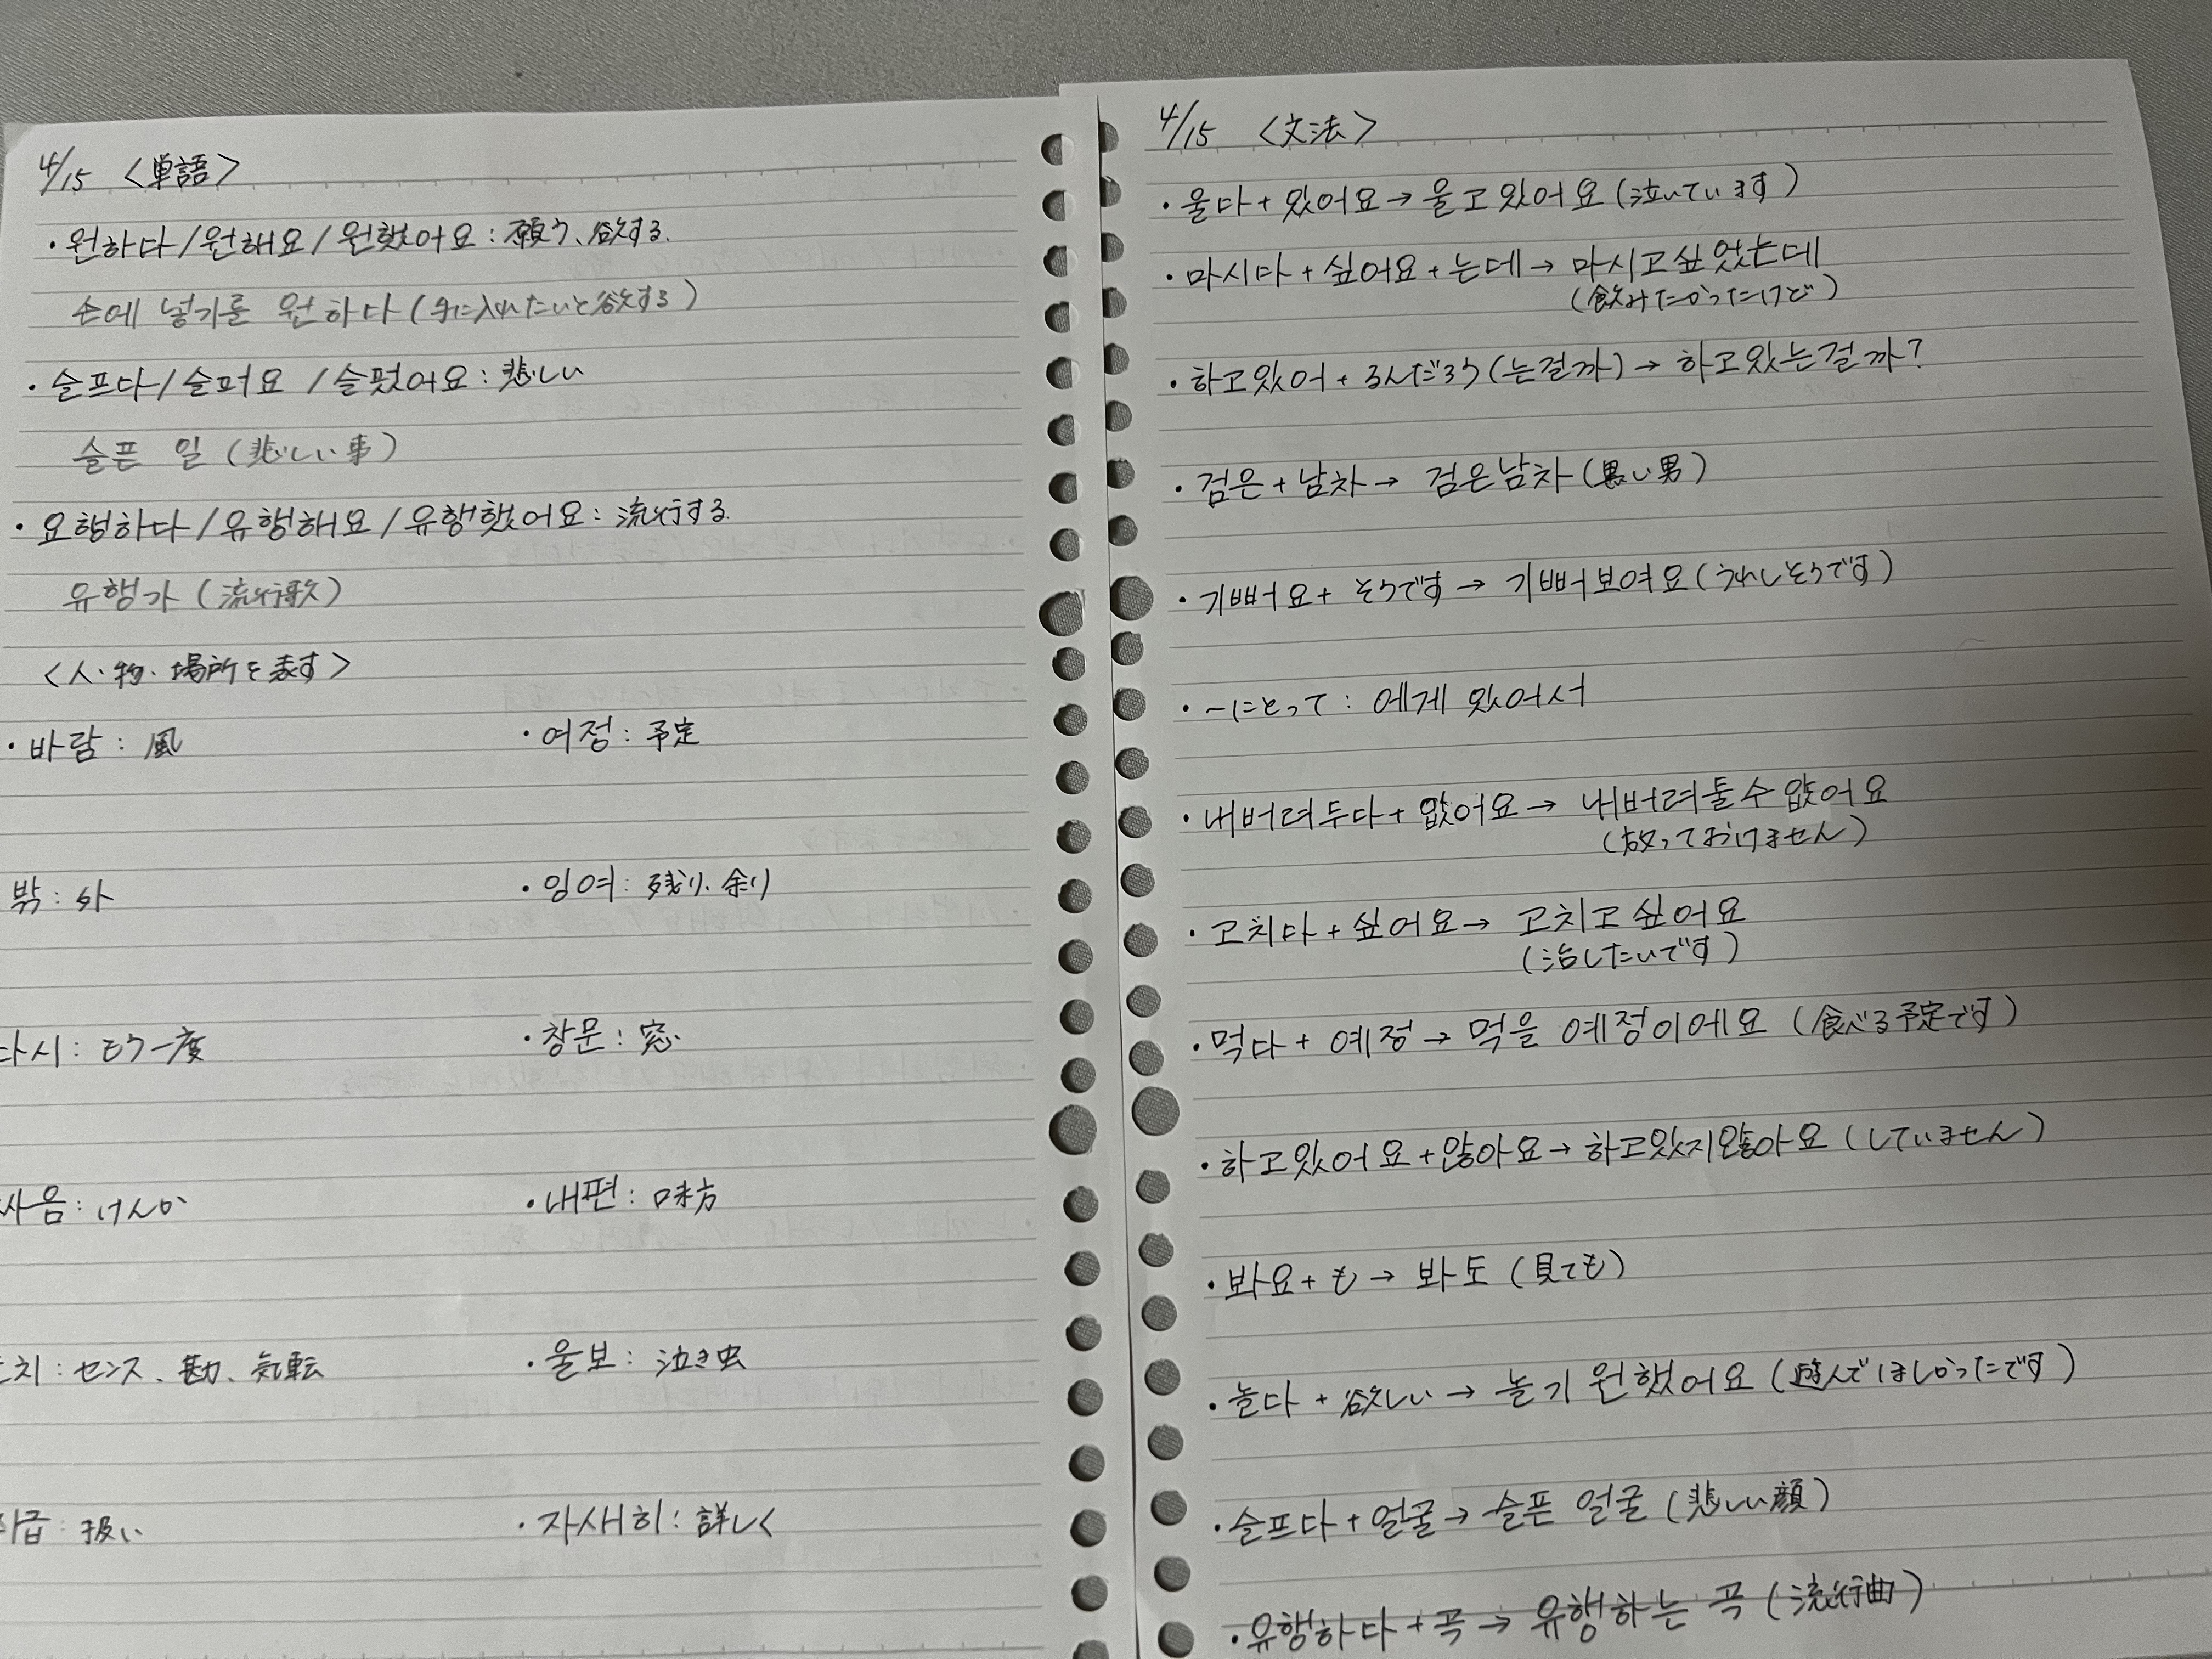 4/15 〈単語〉
・원하다/원해요/원했어요:願う、欲する.
손에 넣기를 원하다(手に入れたいと欲する)
・슬프다/슬퍼요/슬펐어요:悲しい
슬픈 일(悲しい事)
・요행하다/유행해요/유행했어요:流行する.
유행가(流行歌)
〈人・物・場所を表す〉
・바람:風 ・여정:予定
밖:外 ・잉여:残り、余り
다시:もう一度 ・창문:窓
싸음:けんか ・내편:味方
치:センス、勘、気転 ・울보:泣き虫
급:扱い ・자새히:詳しく
4/15 〈文法〉
・울다+있어요→울고있어요(泣いています)
・마시다+싶어요+는데→마시고싶었는데
(飲みたかったけど)
・하고있어+るんだろう(는걸까)→하고있는걸까?
・검은+남차→검은남차(黒い男)
・기뻐요+そうです→기뻐보여요(うれしそうです)
・~にとって:에게 있어서
・내버려두다+없어요→내버려둘수 없어요
(放っておけません)
・고치다+싶어요→고치고싶어요
(治したいです)
・먹다+예정→먹을 예정이에요(食べる予定です)
・하고있어요+않아요→하고있지않아요(していません)
・봐요+も→봐도(見ても)
・놀다+欲しい→놀기 원했어요(遊んでほしかったです)
・슬프다+얼굴→슬픈 얼굴(悲しい顔)
・유행하다+곡→유행하는 곡(流行曲)